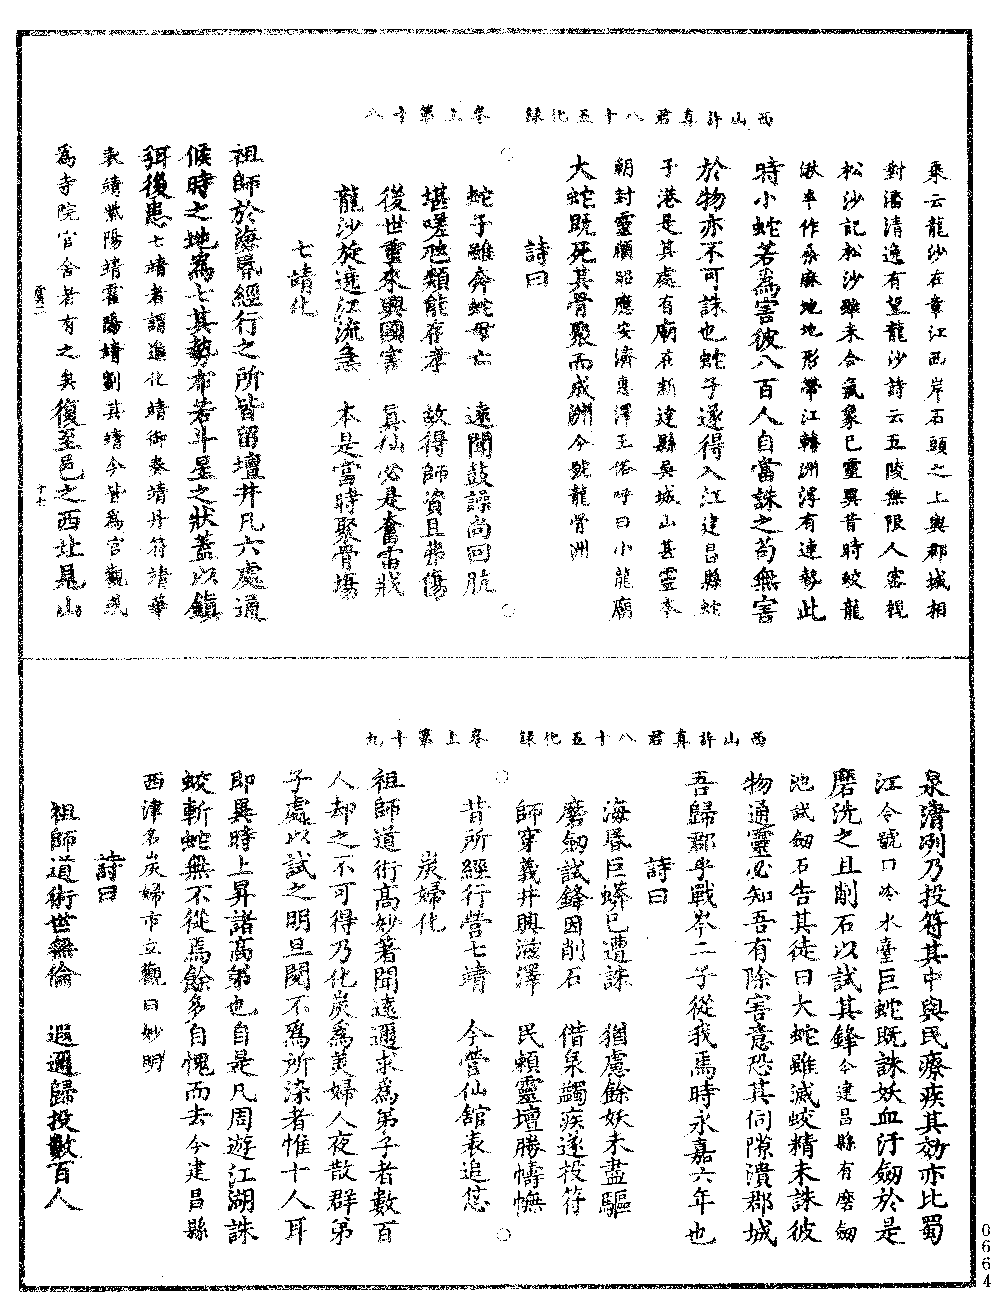 西山許真君八十五化錄　卷上第十八
乘云龍沙在章江西岸石頭之上與郡城相
對潘清逸有望龍沙詩云五陵無限人密視
松沙記松沙雖未合氣象已靈異昔時蛟龍
湫半作桑麻地地形帶江轉洲渟有連勢此
時小蛇若爲害彼八百人自當誅之苟無害
於物亦不可誅也蛇子遂得入江建昌縣蛇
子港是其處有廟在新建縣吳城山甚靈本
朝封靈順昭應安濟惠澤王俗呼曰小龍廟
大蛇既死其骨聚而成洲今號龍骨洲
詩曰
蛇子雖奔蛇母亡　遠聞鼓譟尚回肮
堪嗟虺類能存孝　故得師資且弗傷
後世重來興國害　真仙必是奮雷戕
龍沙旋遶江流急　本是當時聚骨場
七靖化
祖師於海昏經行之所皆留壇井凡六處通
候時之地爲七其勢布若斗星之狀蓋以鎮
弭後患七靖者謂進化靖御奏靖丹符靖華
表靖紫陽靖霍陽靖劉真靖今皆爲宮觀或
爲寺院官舍者有之矣復至邑之西址見山
西山許真君八十五化錄　卷上第十九
泉清冽乃投符其中與民療疾其効亦比蜀
江今號口冷水臺巨蛇既誅妖血汙劒於是
磨洗之且削石以試其鋒今建昌縣有磨劒
池試劒石告其徒曰大蛇雖滅蛟精未誅彼
物通靈必知吾有除害意恐其伺隙潰郡城
吾歸郡乎戰岑二子從我焉時永嘉六年也
詩曰
海昏巨蟒已遭誅　猶慮餘妖未盡驅
磨劒試鋒因削石　借泉蠲疾遂投符
師穿義井興滋澤　民賴靈壇勝幬幠
昔所經行營七靖　今營仙館表追
炭婦化
祖師道術高妙著聞遠邇求爲弟子者數百
人却之不可得乃化炭爲美婦人夜散群弟
子處以試之明旦閱不爲所染者惟十人耳
即異時上昇諸高弟也自是凡周遊江湖誅
蛟斬蛇無不從焉餘多自愧而去今建昌縣
西津名炭婦市立觀曰妙明
詩曰
祖師道術世無倫　遐邇歸投數百人
0664